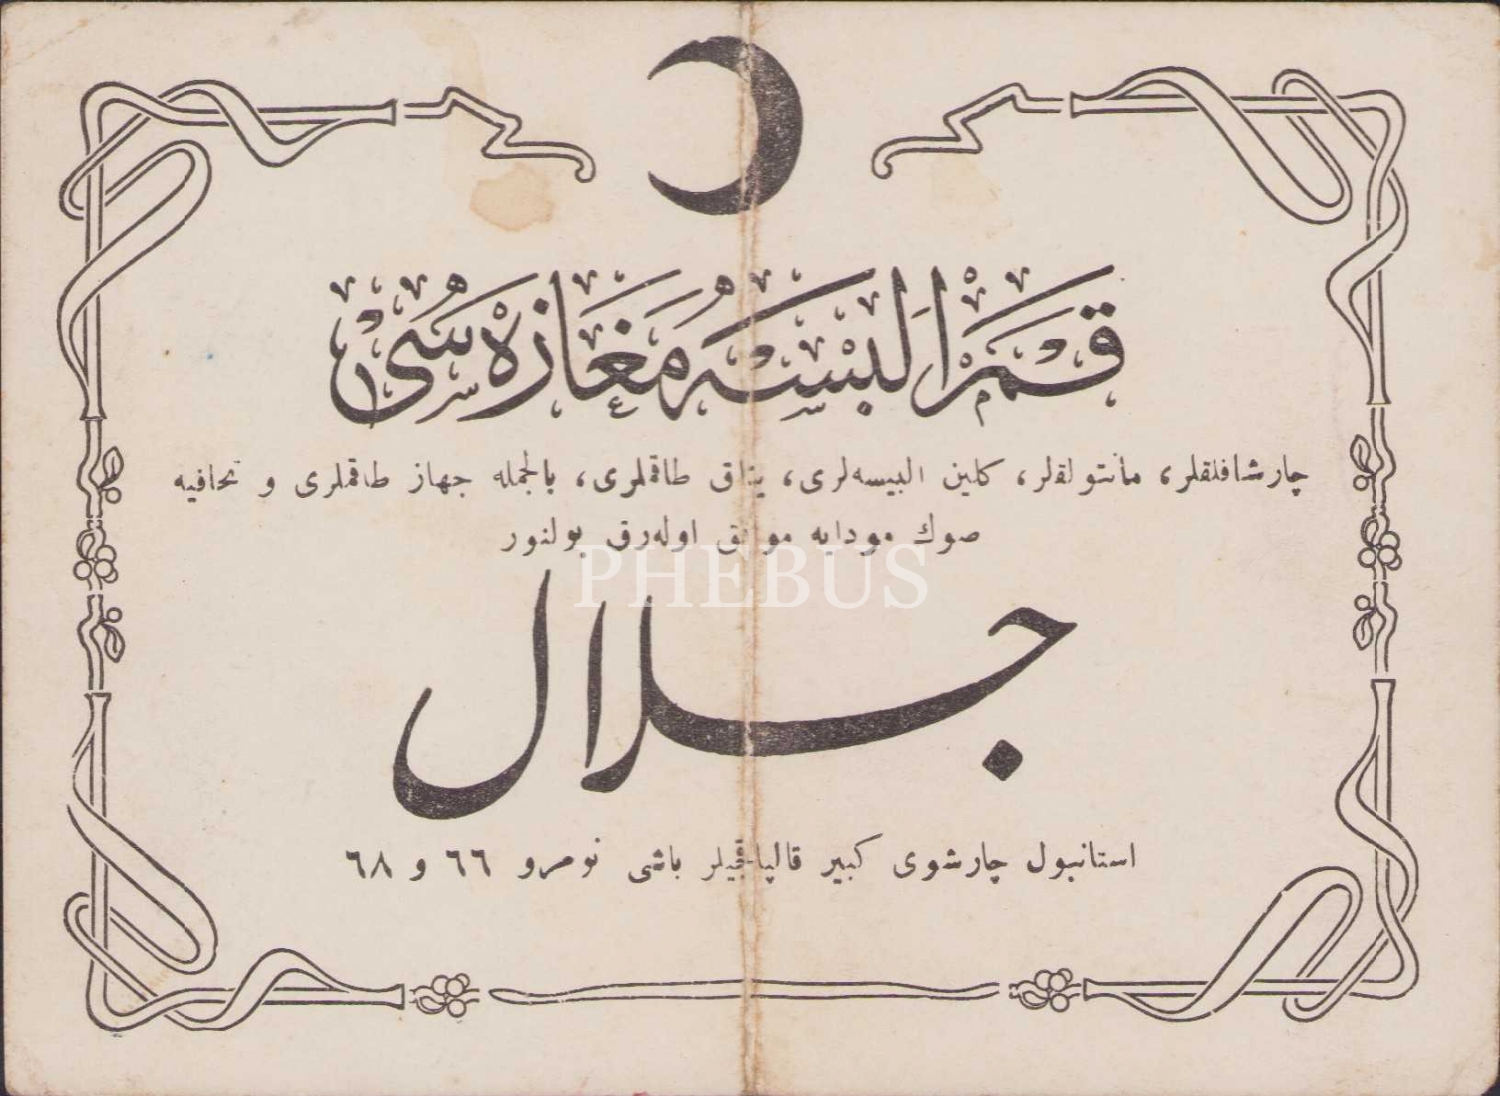 قمر البسه مغازه‌سی
چارشافلقلر، مانتولقلر، كلین البیسه‌لری، یتاق طاقملری، بالجمله جهاز طاقملری و تحافیه
صوك مودایه موافق اوله‌رق بولنور
PHEBUS
جلال
استانبول چارشوی كبیر قالپاقجیلر باشی نومرو ٦٦ و ٦٨